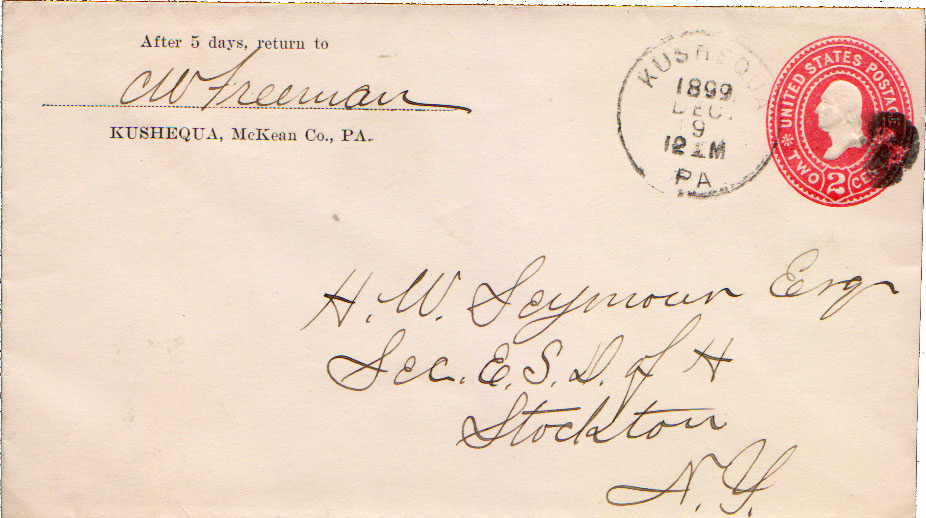 After 5 days, return to
CW Freeman
KUSHEQUA, McKean Co., PA.
KUSHEQUA
1899
DEC.
9
12 M
PA
UNITED STATES POSTAGE
TWO 2 CENTS
H. W. Seymour Esqr
Sec. E. S. D. of H
Stockton
N. Y.